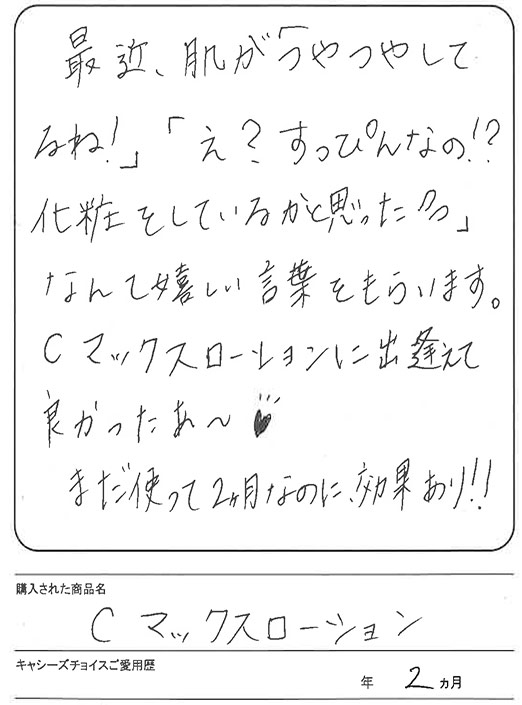 最近、肌が「つやつやして
るね!」「え?すっぴんなの!?
化粧をしているかと思ったわ」
なんて嬉しい言葉をもらいます。
Cマックスローションに出逢えて
良かったあ〜♥
まだ使って2ヶ月なのに、効果あり!!
購入された商品名
Cマックスローション
キャシーズチョイスご愛用歴
年 2 ヵ月